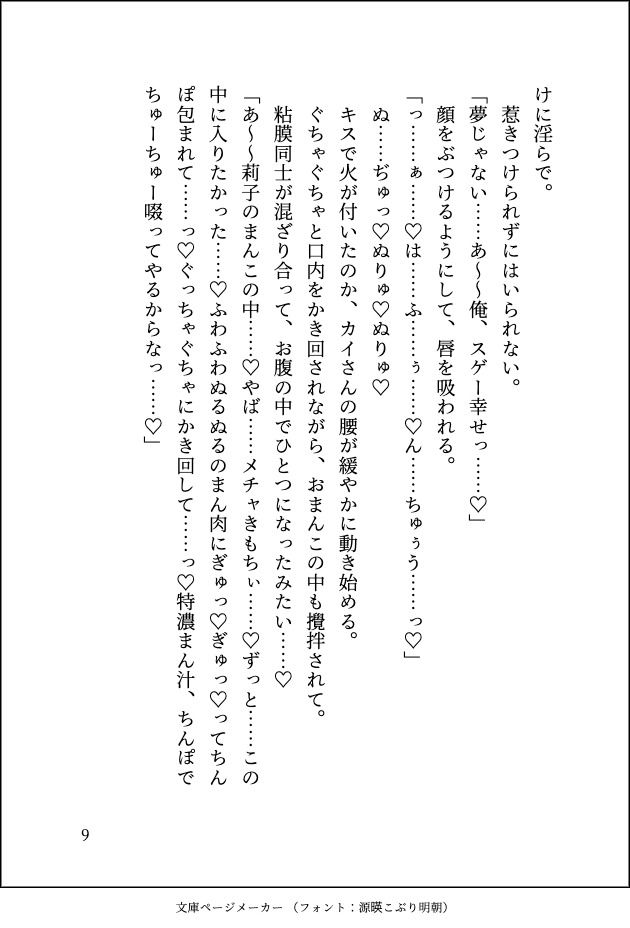 けに淫らで。
惹きつけられずにはいられない。
「夢じゃない……あ～～俺、スゲー幸せっ……♡」
顔をぶつけるようにして、唇を吸われる。
「っ……ぁ……♡は……ふ……ぅ……♡ん……ちゅぅう……っ♡」
ぬ……ぢゅっ♡ぬりゅ♡ぬりゅ♡
キスで火が付いたのか、カイさんの腰が緩やかに動き始める。
ぐちゃぐちゃと口内をかき回されながら、おまんこの中も攪拌されて。
粘膜同士が混ざり合って、お腹の中でひとつになったみたい……♡
「あ～～莉子のまんこの中……♡やば……メチャきもちぃ……♡ずっと……この
中に入りたかった……♡ふわふわぬるぬるのまん肉にぎゅっ♡ぎゅっ♡ってちん
ぽ包まれて……っ♡ぐっちゃぐちゃにかき回して……っ♡特濃まん汁、ちんぽで
ちゅーちゅー啜ってやるからなっ……♡」
9
文庫ページメーカー （フォント：源暎こぶり明朝）